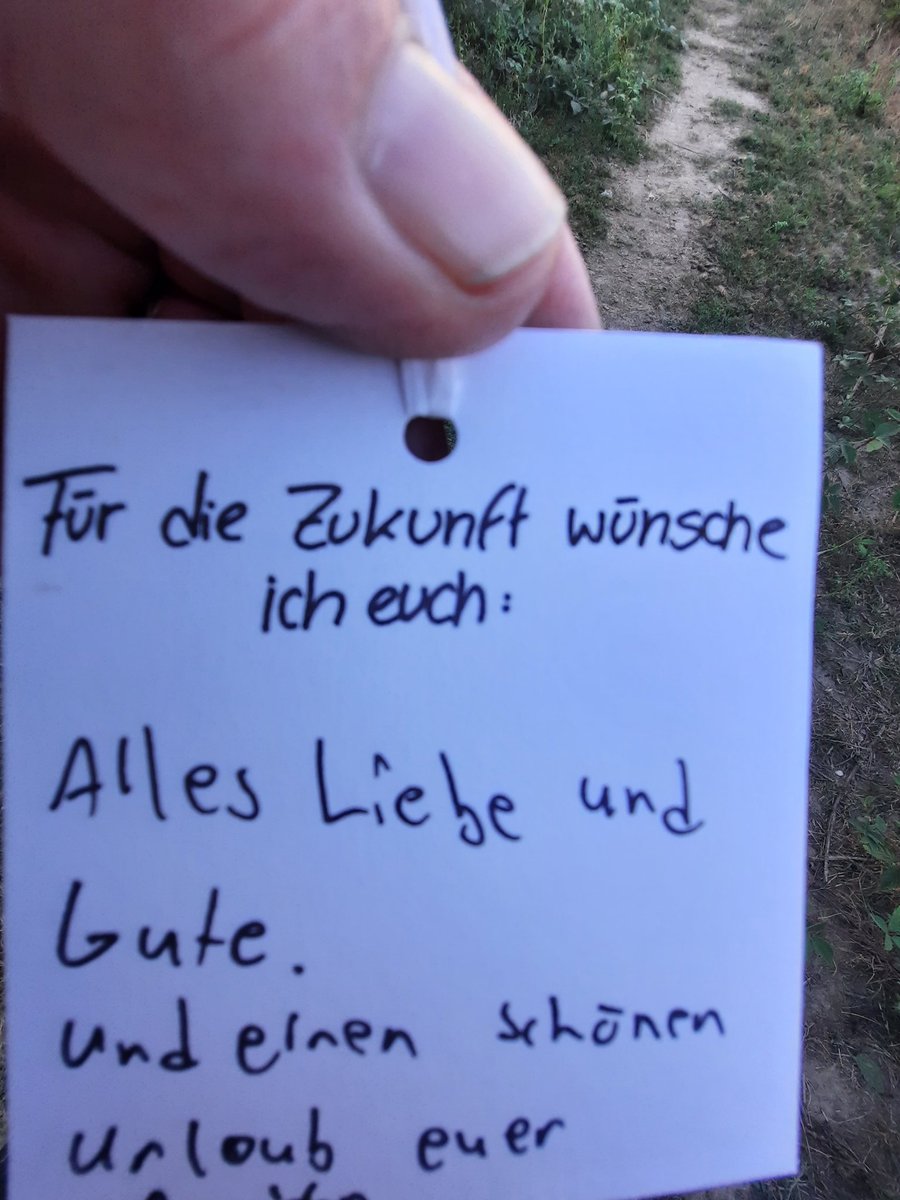 Für die Zukunft wünsche
ich euch:
Alles Liebe und
Gute.
und einen schönen
Urlaub euer